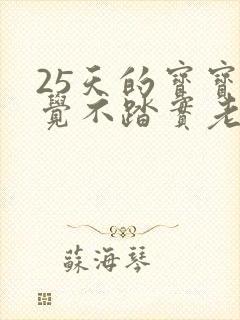 25天的寶寶
覺不踏實老
蘇海琴